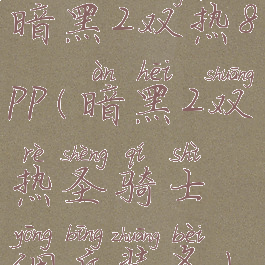 暗黑2双热8
àn hēi shuāng
pp(暗黑2双
rè shèng qí shì
热圣骑士
yōng bīng zhuāng bèi